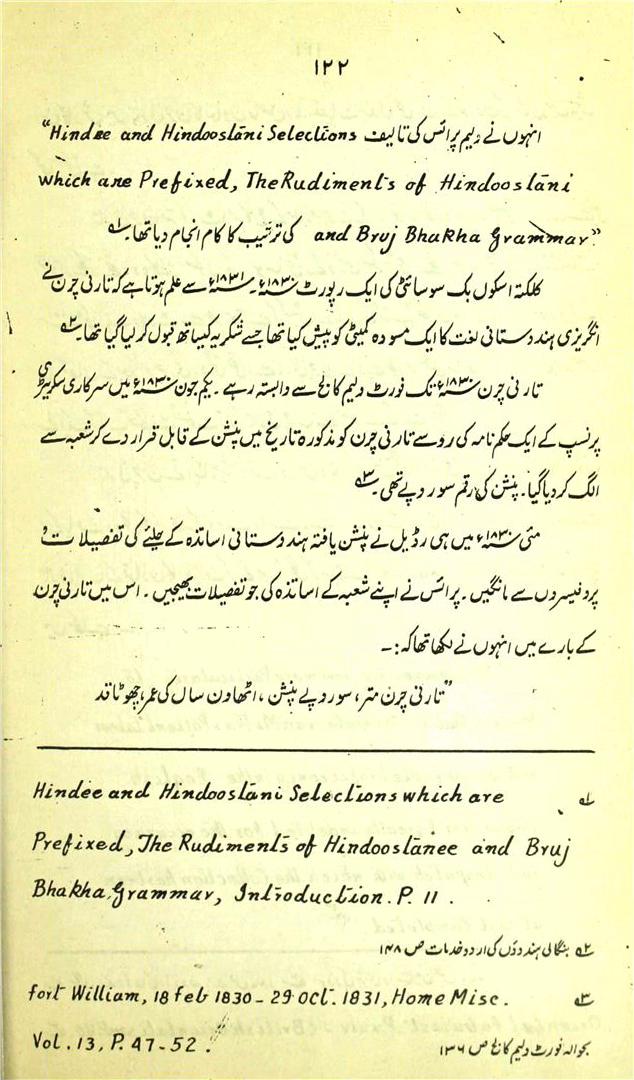 ۱۲۲
انہوں نے ولیم پرائس کی تالیف "Hindee and Hindooslāni Selections
which are Prefixed, The Rudiments of Hindooslāni
and Bruj Bhakha Grammar" کی ترتیب کا کام انجام دیا تھا۔ ۱؎
کلکتہ اسکول بک سوسائٹی کی ایک رپورٹ ۱۸۳۰ء۔ ۱۸۳۱ء سے علم ہوتا ہے کہ تارنی چرن نے
انگریزی ہندستانی لغت کا ایک مسودہ کمیٹی کو پیش کیا تھا جسے شکریہ کیساتھ قبول کر لیا گیا تھا۔ ۲؎
تارنی چرن ۱۸۳۰ء تک فورٹ ولیم کالج سے وابستہ رہے۔ یکم جون ۱۸۳۰ء میں سرکاری سکریٹری
پرنسپ کے ایک حکم نامہ کی رو سے تارنی چرن کو مذکورہ تاریخ میں پنشن کے قابل قرار دے کر شعبہ سے
الگ کر دیا گیا۔ پنشن کی رقم سو روپے تھی۔ ۳؎
مئی ۱۸۳۰ء میں ہی رڈیل نے پنشن یافتہ ہندستانی اساتذہ کے حلئے کی تفصیلات و
پروفیسروں سے مانگیں۔ پرائس نے اپنے شعبہ کے اساتذہ کی جو تفصیلات بھیجیں۔ اس میں تارنی چرن
کے بارے میں انہوں نے لکھا تھا کہ :۔
"تارنی چرن متر، سو روپے پنشن، اٹھاون سال کی عمر، چھوٹا قد
۱؎ Hindee and Hindooslāni Selections which are
Prefixed, The Rudiments of Hindooslānee and Bruj
Bhakha, Grammar, Introduction. P. 11.
۲؎ بنگالی ہندوؤں کی اردو خدمات ص ۱۴۸
۳؎ fort William, 18 feb 1830 - 29 oct. 1831, Home Misc.
Vol. 13, P. 47-52. بحوالہ فورٹ ولیم کالج ص ۱۳۶